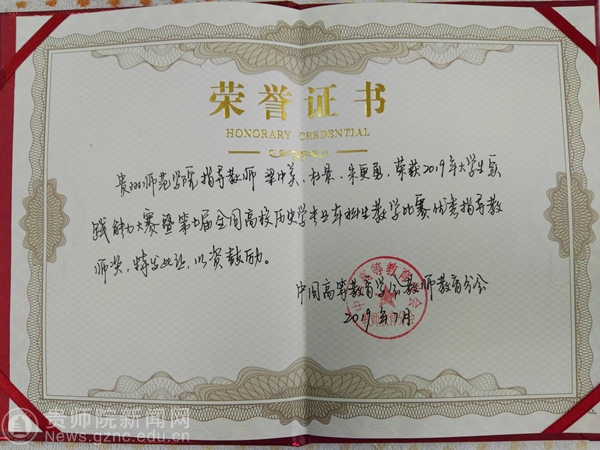 荣誉证书
HONORARY CREDENTIAL
贵州师范学院指导教师 梁中美、杜景、朱更勇,荣获2019年大学生实
践能力大赛暨第七届全国高校历史学专业本科生教学比赛优秀指导教
师奖,特发此证,以资鼓励。
中国高等教育学会教师教育分会
2019年7月
贵师院新闻网
News.gznc.edu.cn